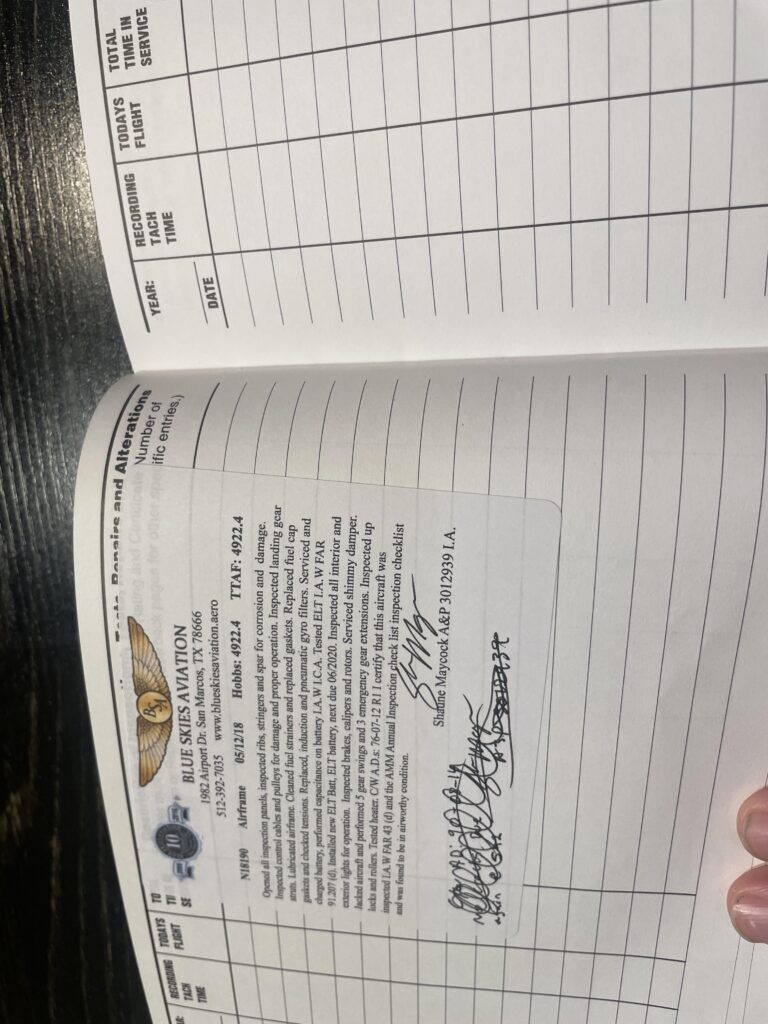 Tests, Repairs and Alterations
Number of
ific entries.)
TO
TI
SE
TODAYS
FLIGHT
RECORDING
TACH
TIME
AR:
10
BSA
BLUE SKIES AVIATION
1982 Airport Dr. San Marcos, TX 78666
512-392-7035 www.blueskiesaviation.aero
N18190 Airframe 05/12/18 Hobbs: 4922.4 TTAF: 4922.4
Opened all inspection panels, inspected ribs, stringers and spar for corrosion and damage.
Inspected control cables and pulleys for damage and proper operation. Inspected landing gear
struts. Lubricated airframe. Cleaned fuel strainers and replaced gaskets. Replaced fuel cap
gaskets and checked tensions. Replaced, induction and pneumatic gyro filters. Serviced and
charged battery, performed capacitance on battery I.A.W I.C.A. Tested ELT I.A.W FAR
91.207 (d). Installed new ELT Batt, ELT battery, next due 06/2020. Inspected all interior and
exterior lights for operation. Inspected brakes, calipers and rotors. Serviced shimmy damper.
Jacked aircraft and performed 5 gear swings and 3 emergency gear extensions. Inspected up
locks and rollers. Tested heater. C/W A.D.s: 76-07-12 R1 I certify that this aircraft was
inspected I.A.W FAR 43 (d) and the AMM Annual Inspection check list inspection checklist
and was found to be in airworthy condition.
Shaune Maycock A&P 3012939 I.A.
YEAR:
DATE
RECORDING
TACH
TIME
TODAYS
FLIGHT
TOTAL
TIME IN
SERVICE